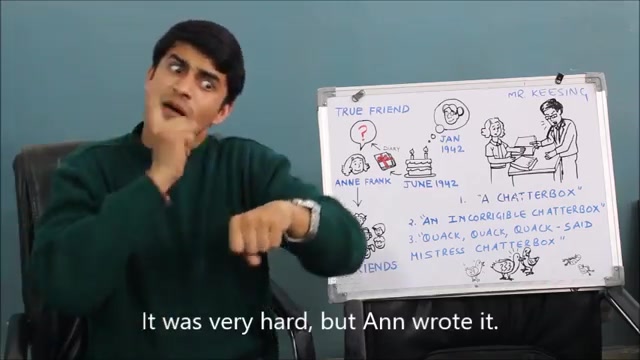 TRUE FRIEND
MR. KEESING
?
DIARY
JAN
1942
ANNE FRANK
JUNE 1942
1. "A CHATTERBOX"
2. "AN INCORRIGIBLE CHATTERBOX"
3. "QUACK, QUACK, QUACK - SAID
MISTRESS CHATTERBOX"
FRIENDS
It was very hard, but Ann wrote it.